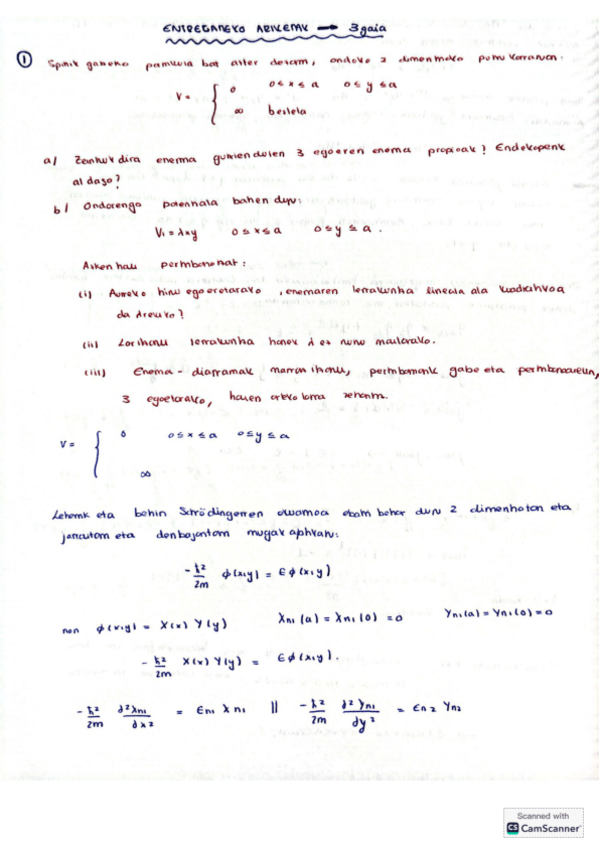 ENTREGATZEKO ARIKETAK → 3 gaia
① Spinik gabeko partikula bat aztertu dezagun, ondoko 2 dimentsioko putzu karratuan:
V = { 0 0≤x≤a 0≤y≤a
∞ bestela
a/ Zeintzuk dira energia gutxien duten 3 egoeren energia propioak? Endekapenik
al dago?
b/ Ondorengo potentziala badugu:
V₁ = λxy 0≤x≤a 0≤y≤a.
Azken hau perturbazio bat:
(i) Aurreko hiru egoeretarako, energiaren lerrakuntza lineala ala kuadratikoa
da λrekiko?
(ii) Lortu lerrakuntza honek λ
(iii) Energia-diagramak marraztu, perturbaziorik gabe eta perturbazioarekin,
3 egoetarako, haien arteko lotura zehaztu.
V = { 0 0≤x≤a 0≤y≤a
∞
Lehenik eta behin Schrödingerren ebatzi behar dugu 2 dimentsiotan eta
mugak aplikatu:
-ħ²/2m ϕ(x,y) = ϵ ϕ(x,y)
non ϕ(x,y) = X(x) Y(y) Xn₁(a) = Xn₁(0) = 0 Yn₁(a) = Yn₁(0) = 0
-ħ²/2m X(x) Y(y) = ϵϕ(x,y).
-ħ²/2m d²Xn₁/dx² = ϵn₁ Xn₁ || -ħ²/2m d²Yn₁/dy² = ϵn₂ Yn₂
Scanned with
CS CamScanner